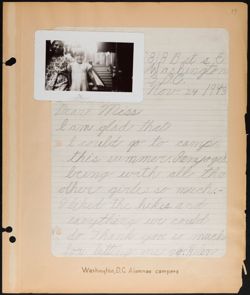 B St. S. E.
Washington
D.C.
Nov 24, 1943
Dear Miss
I am glad that
I could go to camp
this summer. I enjoyed
being with all the
other girls so much.
I liked the hikes and
everything we could
do. Thank you so much
for letting me
Washington, D.C. Alumnae campers